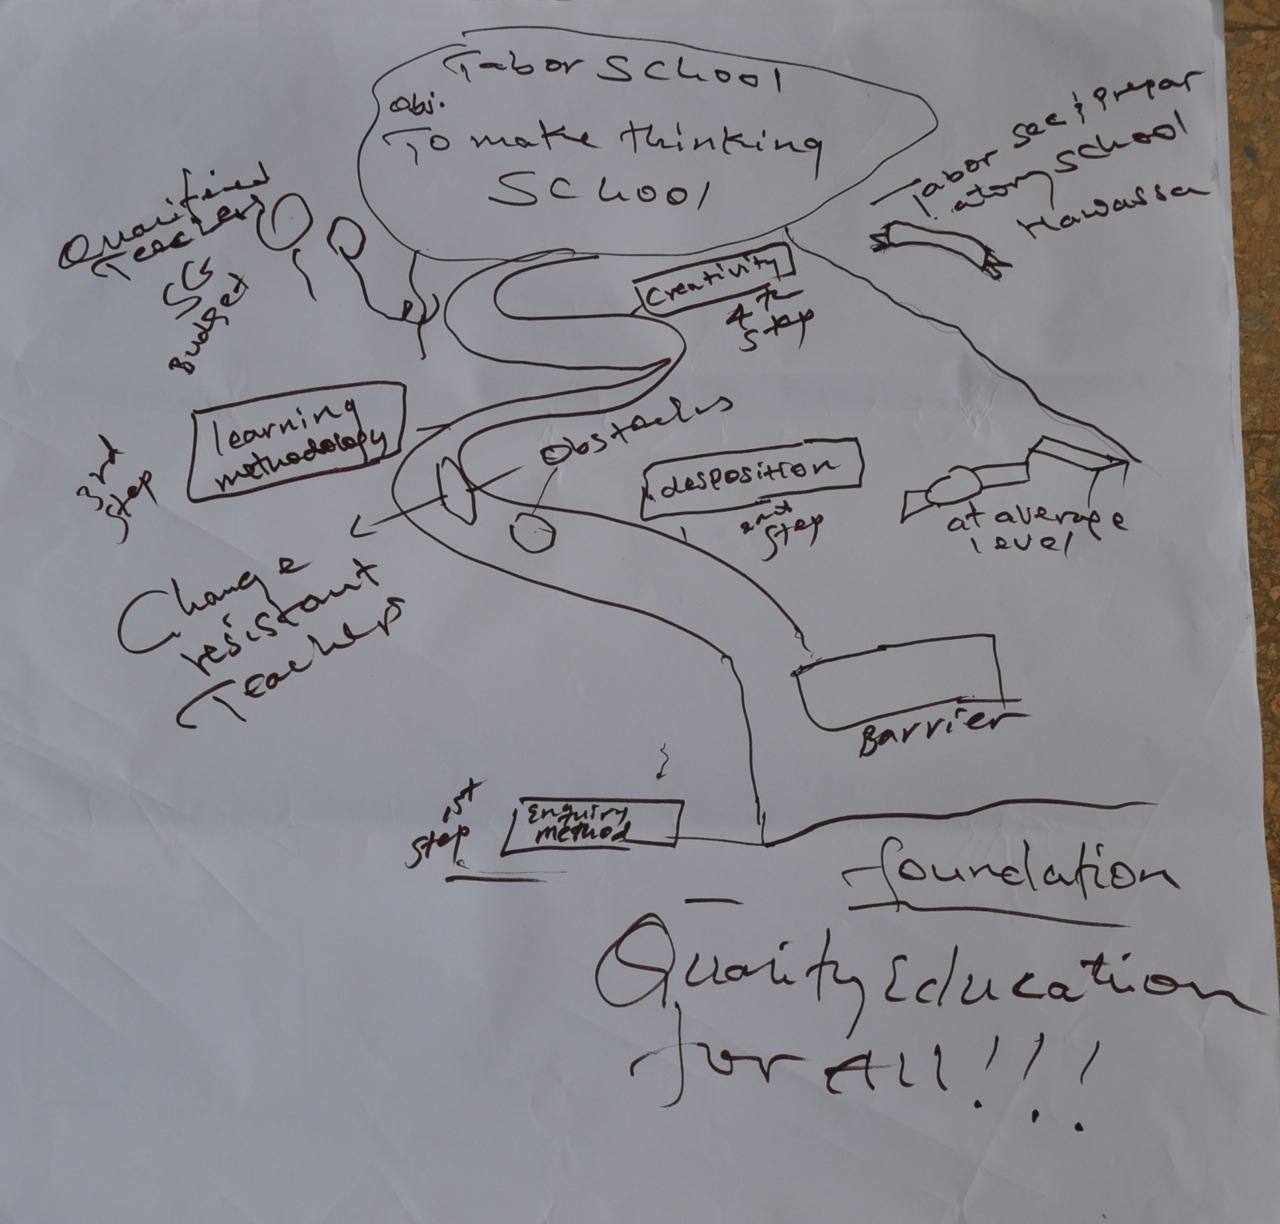 Tabor School
Obj.
To make thinking
School
Tabor sec & prepar
atory School
Hawassa
Qualified
Teachers
SG
Budget
Creativity
4th
step
learning
methodology
3rd
step
Obstacles
desposition
2nd
step
at average
level
Change
resistant
Teachers
Barrier
1st
step
Enquiry
method
foundation
Quality Education
for All!!!